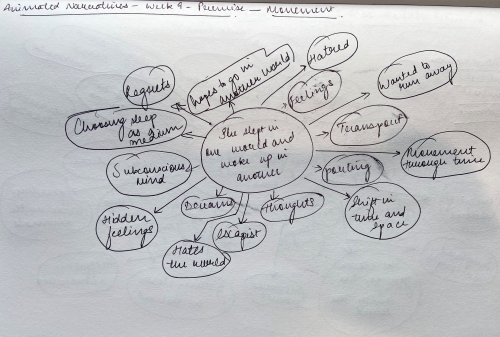 Animated Narratives - Week 9 - Premise - Movement
Hatred
hopes to go in
another world
Regrets
Feelings
Wanted to
run away
Choosing sleep
as a
medium
She slept in
one world and
woke up in
another
Transport
Movement
through time
Subconscious
mind
pouting
Dreams
Thoughts
Shift in
time and
space
Hidden
feelings
escapist
Hates
the world